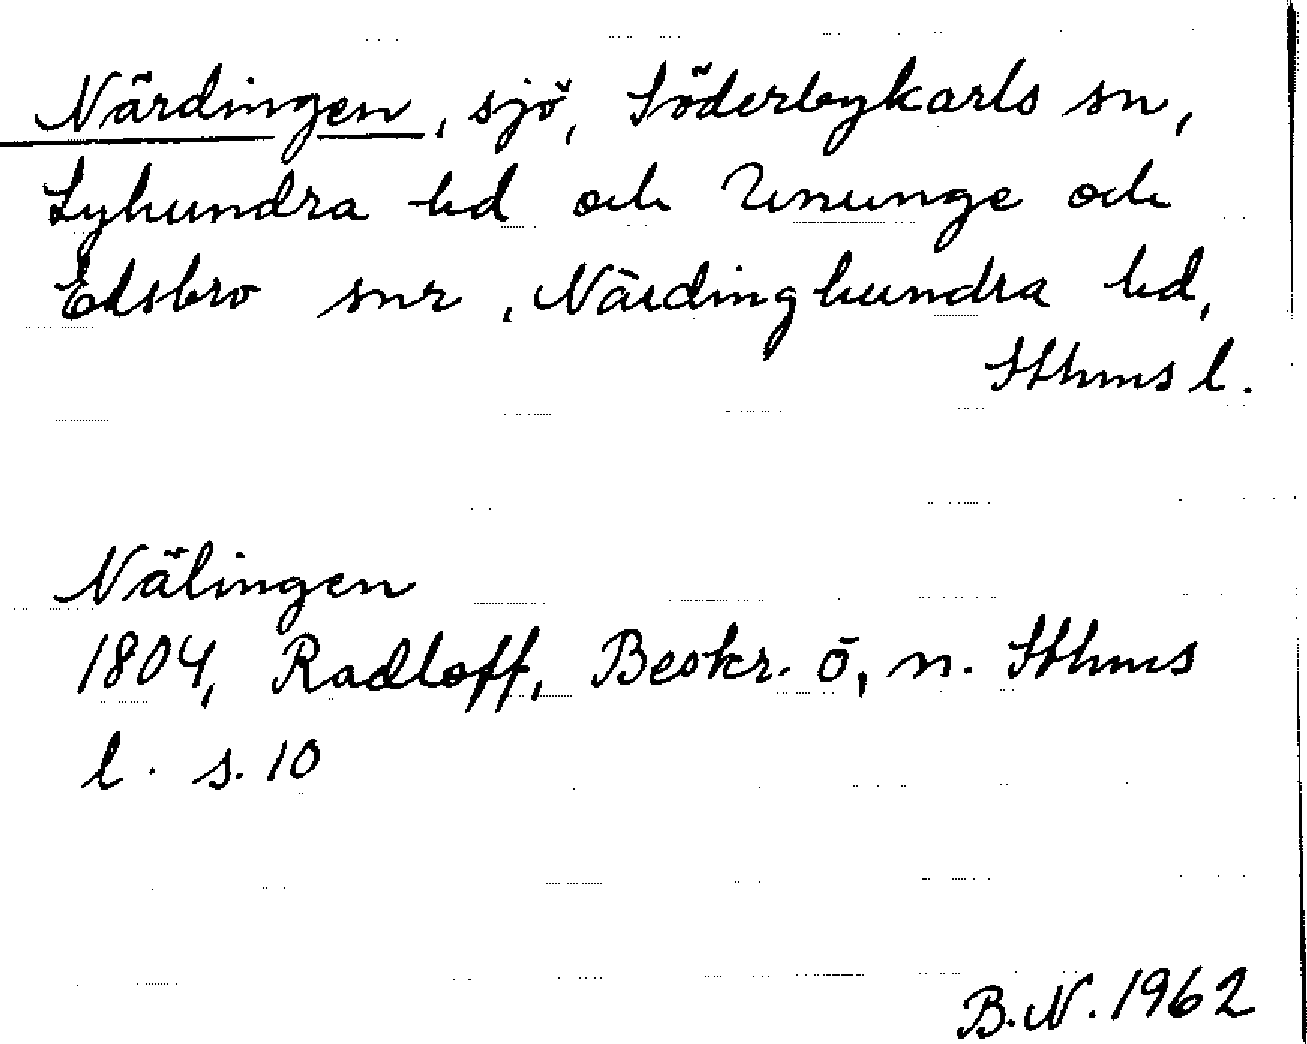 Närdingen, sjö, Söderbykarls sn,
Lyhundra hd och Ununge och
Edsbro snr, Närdinghundra hd,
Sthms l.
Nälingen
1804, Radloff, Beskr. ö, n. Sthms
l. s. 10
B.N. 1962